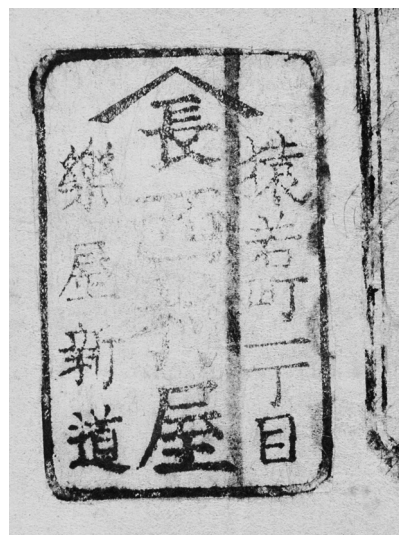 猿若町一丁目
長
屋
樂屋新道